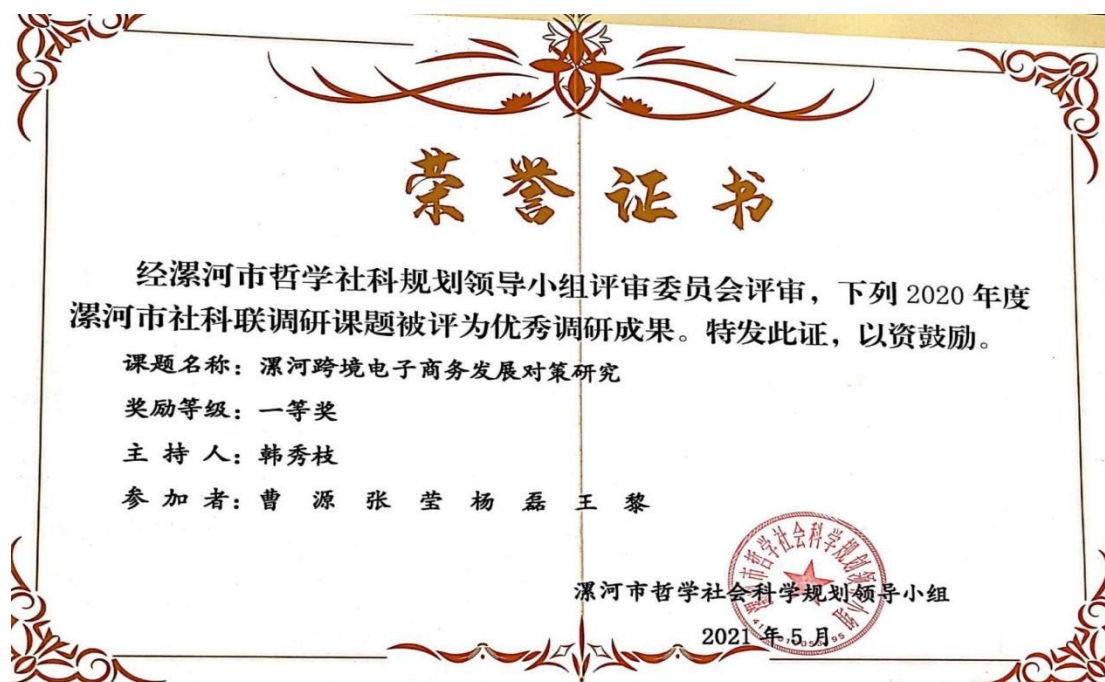 荣誉证书
经漯河市哲学社科规划领导小组评审委员会评审，下列 2020 年度
漯河市社科联调研课题被评为优秀调研成果。特发此证，以资鼓励。
课题名称：漯河跨境电子商务发展对策研究
奖励等级：一等奖
主 持 人：韩秀枝
参 加 者：曹 源 张 莹 杨 磊 王 黎
漯河市哲学社会科学规划领导小组
漯河市哲学社会科学规划领导小组
2021 年 5 月